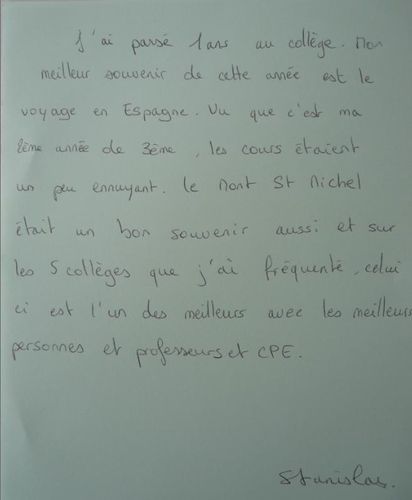 J'ai passé 1 ans au collège. Mon
meilleur souvenir de cette année est le
voyage en Espagne. Vu que c'est ma
2ème année de 3ème, les cours étaient
un peu ennuyant. Le Mont St Michel
était un bon souvenir aussi et sur
les 5 collèges que j'ai fréquenté, celui
ci est l'un des meilleurs avec les meilleurs
personnes et professeurs et CPE.
Stanislas.